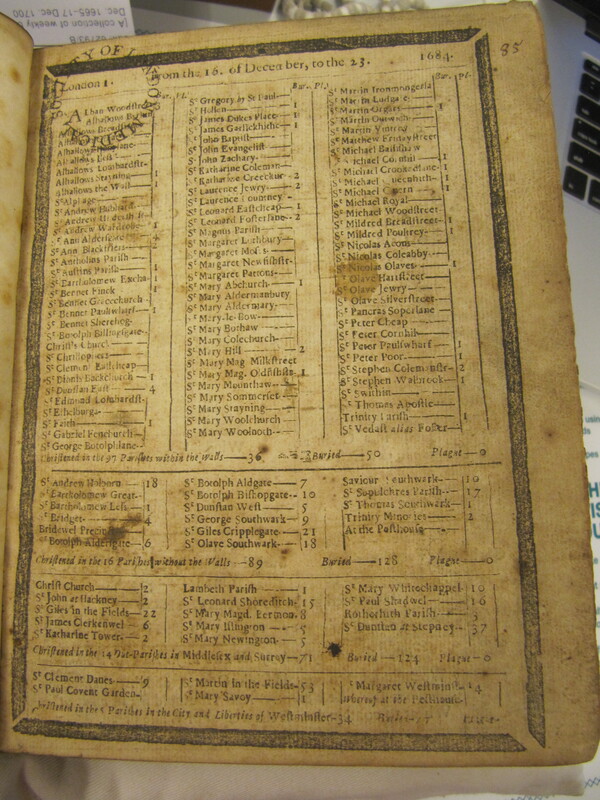 Dec 1665-17 Dec 1700
[A collection of weekly
85
London 1. From the 16. of December, to the 23. 1684.
Bur. Pl.
Bur. Pl.
Bur. Pl.
Alhallows Lombardstr
Alhallows Stayning 1
Alhallows the Wall 1
St Alphage
St Andrew Hubbard
St Andrew Wardrobe 1
St Ann Aldersgate
St Ann Blackfriers
St Antholins Parish
St Austins Parish
St Bartholomew Excha. 1
St Bennet Finck 1
St Bennet Gracechurch
St Bennet Paulwharf 1
St Bennet Sherehog
St Botolph Billingsgate
Christs Church
St Christophers
St Clement Eastcheap
St Dionis Backchurch 1
St Dunstan East 4
St Edmund Lombardst.
St Ethelburga
St Faith 1
St Gabriel Fenchurch
St George Botolphlane
St Gregory by St Paul
St Hellen 1
St James Dukes Place 1
St James Garlickhithe 1
St John Baptist
St John Evangelist
St John Zachary
St Katharine Coleman
St Katharine Creechur. 2
St Laurence Jewry 2
St Laurence Pountney
St Leonard Eastcheap 1
St Leonard Fosterlane 2
St Magnus Parish
St Margaret Lothbury
St Margaret Moses
St Margaret Newfishstr.
St Margaret Pattons
St Mary Abchurch 1
St Mary Aldermanbury
St Mary Aldermary
St Mary-le-Bow
St Mary Bothaw
St Mary Colechurch
St Mary Hill 2
St Mary Mag. Milkstreet
St Mary Mag. Oldfishstr. 1
St Mary Mounthaw
St Mary Somerset
St Mary Stayning
St Mary Woolchurch
St Mary Woolnoth
St Martin Ironmongerla
St Martin Ludgate
St Martin Orgars 1
St Martin Outwich
St Martin Vintrey
St Matthew Fridaystreet
St Michael Bassishaw
St Michael Cornhill 1
St Michael Crookedlane 1
St Michael Queenhith 1
St Michael Quern
St Michael Royal
St Michael Woodstreet
St Mildred Breadstreet 1
St Mildred Poultrey 1
St Nicolas Acons
St Nicolas Coleabby
St Nicolas Olaves 1
St Olave Hartstreet
St Olave Jewry
St Olave Silverstreet
St Pancras Soperlane
St Peter Cheap
St Peter Cornhil
St Peter Paulswharf 1
St Peter Poor 1
St Stephen Colemanstr. 2
St Stephen Walbrook 1
St Swithin
St Thomas Apostle
Trinity Parish 1
St Vedast alias Foster
Christened in the 97 Parishes within the Walls 36 Buried 50 Plague 0
St Andrew Holborn 18
St Bartholomew Great
St Bartholomew Less 1
St Bridget 4
Bridewel Precinct
St Botolph Aldersgate 6
St Botolph Aldgate 7
St Botolph Bishopgate 10
St Dunstan West 5
St George Southwark 9
St Giles Cripplegate 21
St Olave Southwark 18
Saviour Southwark 10
St Sepulchres Parish 17
St Thomas Southwark 1
Trinity Minories 2
At the Pesthouse
Christened in the 16 Parishes without the Walls 89 Buried 128 Plague 0
Christ Church 2
St John at Hackney 2
St Giles in the Fields 22
St James Clerkenwel 6
St Katharine Tower 2
Lambeth Parish 1
St Leonard Shoreditch 15
St Mary Magd. Bermon. 8
St Mary Islington 5
St Mary Newington 5
St Mary Whitechappel 10
St Paul Shadwel 16
Rotherhith Parish 3
St Dunstan at Stepney 37
Christened in the 14 Out-Parishes in Middlesex and Surrey 71 Buried 124 Plague 0
St Clement Danes 9
St Paul Covent Garden
St Martin in the Fields 53
St Mary Savoy 1
St Margaret Westminst. 14
whereof at the Pesthouse
Christened in the 5 Parishes in the City and Liberties of Westminster 34 Buried